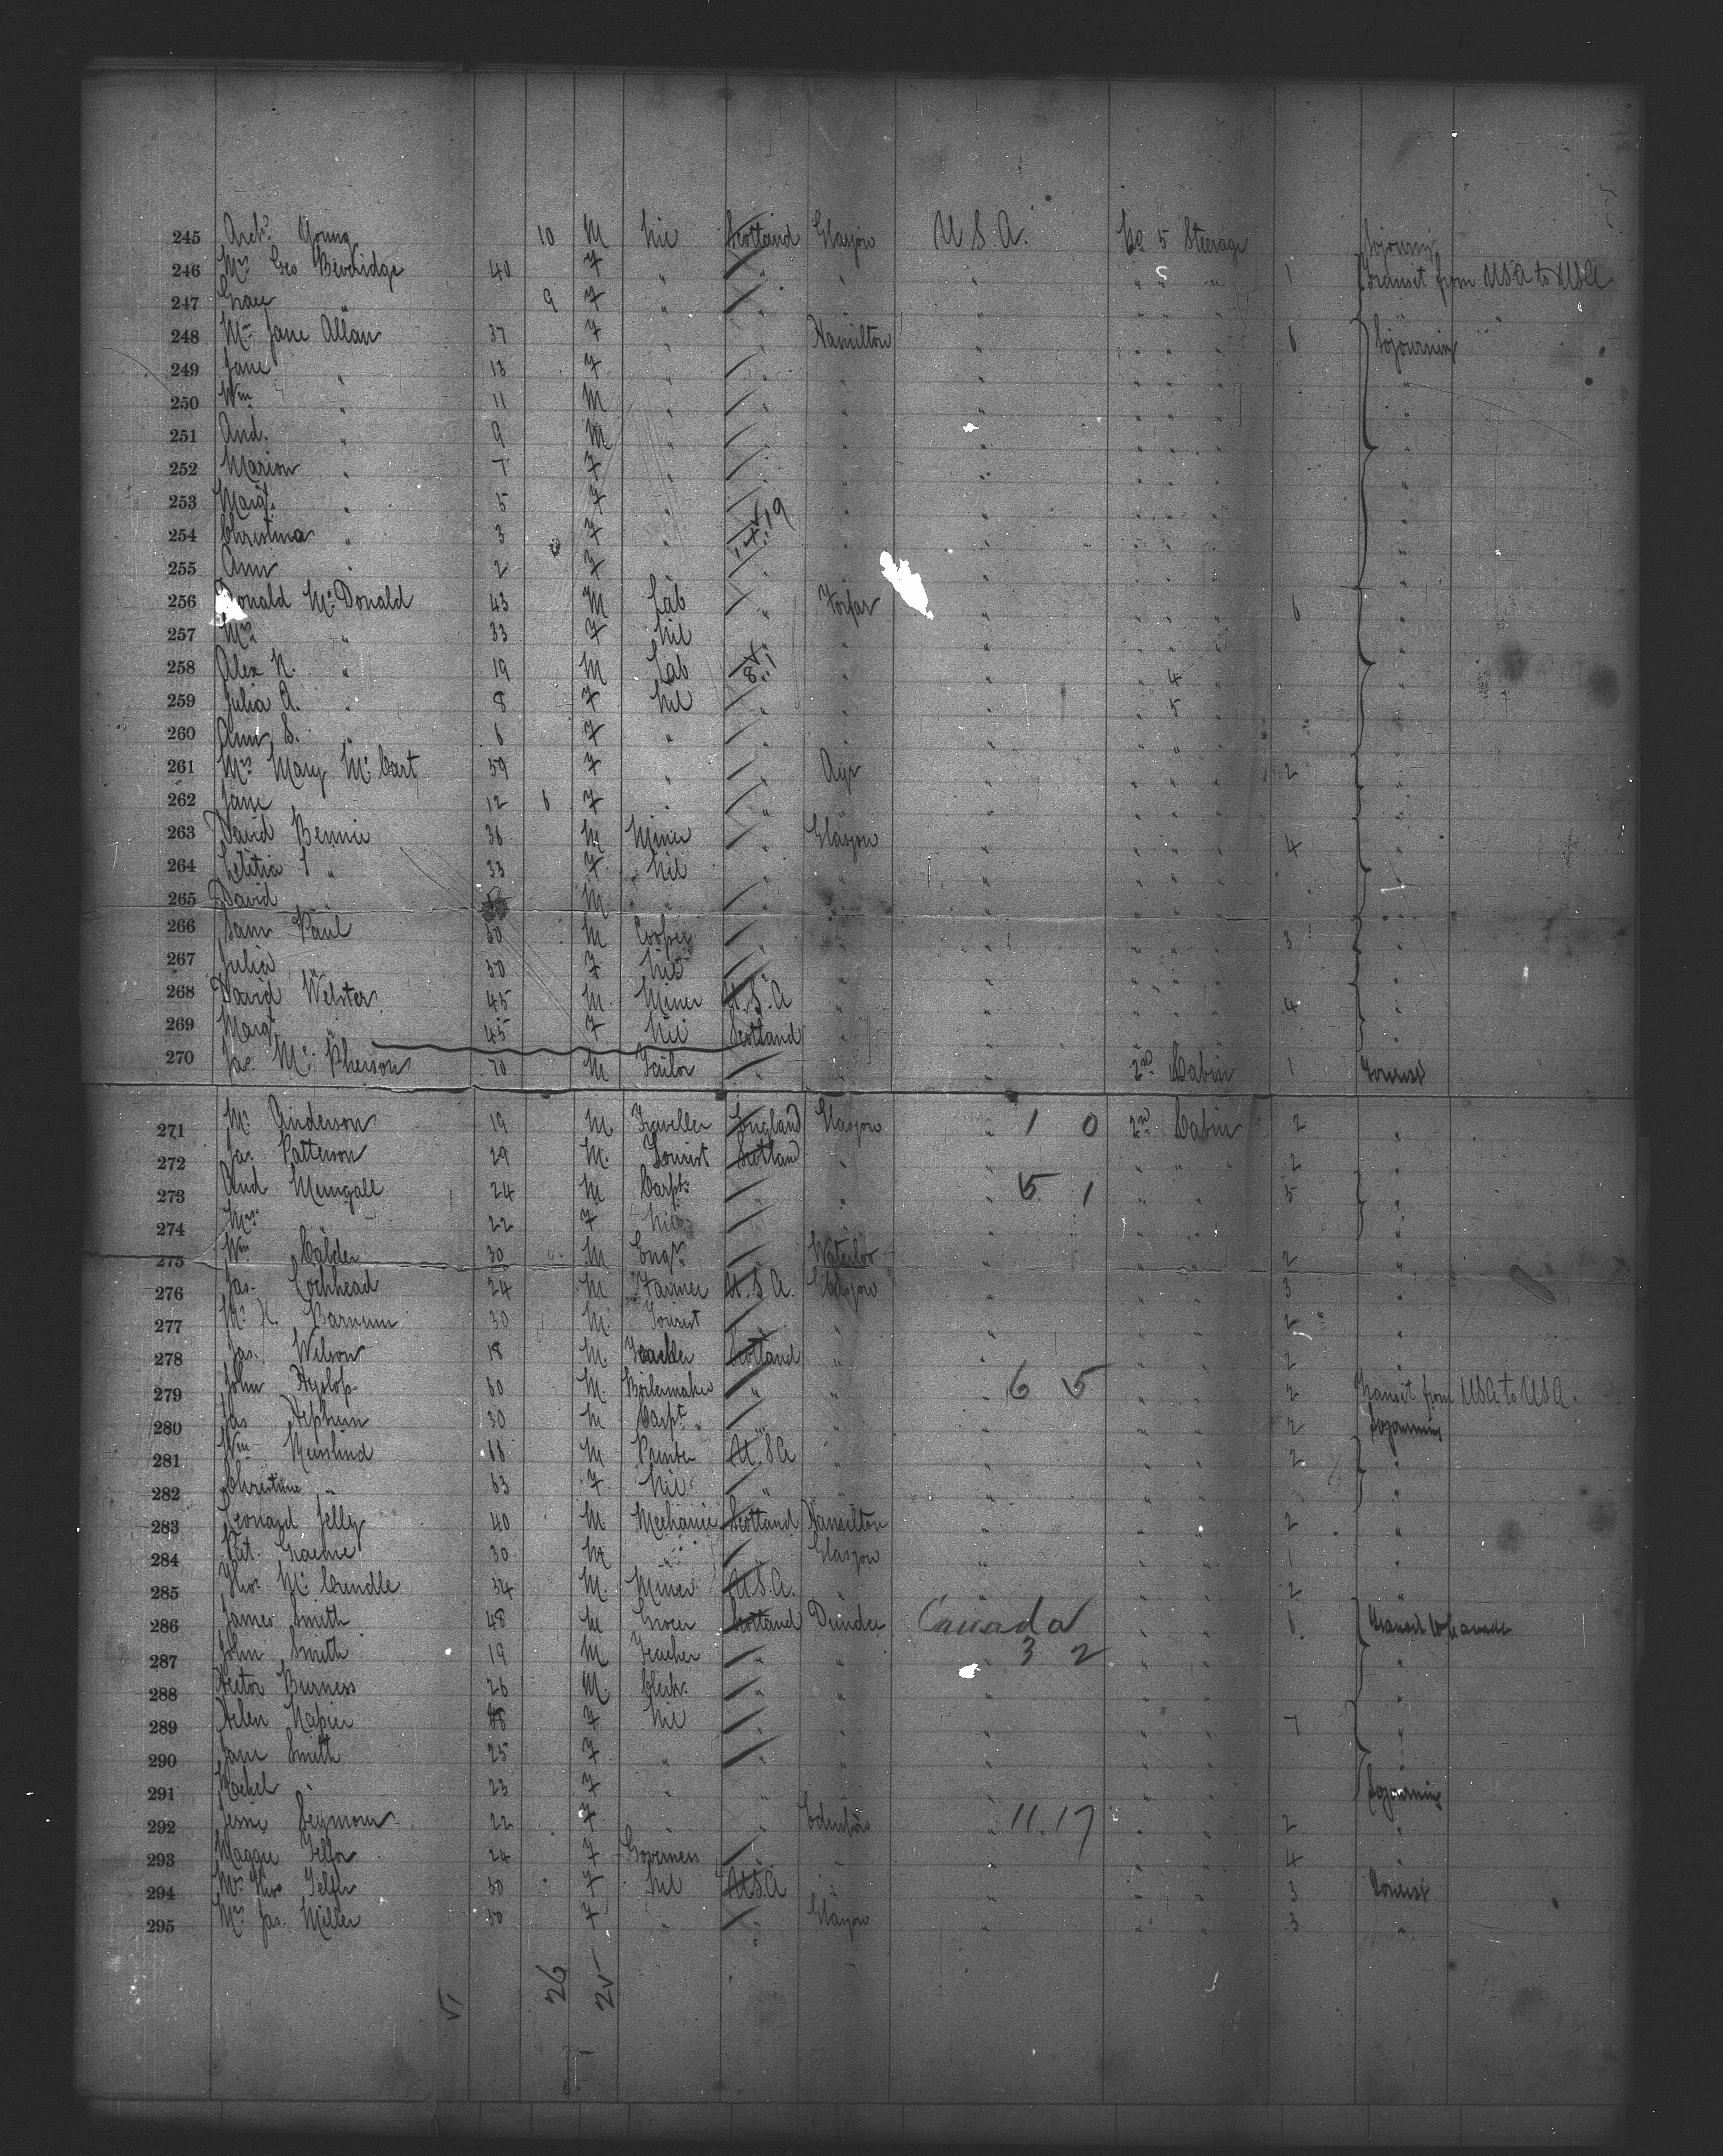 245 Archd Young 10 M Nil Scotland Glasgow U.S.A. No 5 Steerage Sojourning
246 Mrs Geo Beveridge 40 F " " " " " 5 " 1 Transit from USA to USA
247 Grace " 9 F " " " " " " "
248 Mrs Jane Allan 37 F " " Hamilton " " " " 6 Sojourning
249 Jane " 13 F " " " " " " " "
250 Wm " 11 M " " " " " " " "
251 And. " 9 M " " " " " " "
252 Marion " 7 F " " " " " " "
253 Margt " 5 F " " " " " " " "
254 Christina " 3 F " " " " " " "
255 Ann " 2 F " " " " " " "
256 Donald McDonald 43 M Lab " Forfar " " " " 6 "
257 Mrs " 33 F Nil " " " " " " "
258 Alex N. " 19 M Lab " " " " 4 " "
259 Julia A. " 8 F Nil " " " " 5 " "
260 Ann S. " 6 F " " " " " " " "
261 Mrs Mary McCart 59 F " " Ayr " " " " 2 "
262 Jane " 12 6 F " " " " " " " "
263 David Bennie 36 M Miner " Glasgow " " " " 4 "
264 Letitia S " 33 F Nil " " " " " " "
265 David " M " " " " " " " "
266 Sam Paul 30 M Cooper " " " " " " 3 "
267 Julia " 30 F Nil " " " " " " "
268 David Webster 45 M. Miner U.S.A " " " " " 4 "
269 Margt " 45 F Nil Scotland " " " " " "
270 Jas. McPherson 70 M Tailor " " 2nd Cabin 1 Tourist
271 Mr Anderson 19 M Traveller England Glasgow " 1 0 2nd Cabin 2 "
272 Jas. Patterson 29 M. Tourist Scotland " " " " 2 "
273 And Mungall 24 M Carptr " " " 5 1 " " 5 "
274 Mrs " 22 F Nil " " " " " "
275 Wm Calder 30 M Engr. " Waterloo " " " 2 "
276 Jas. Lochhead 24 M Farmer U.S.A. Glasgow " " " 3 "
277 Mr H. Barnum 30 M. Tourist " " " " " 2 "
278 Jas. Wilson 18 M. Teacher Scotland " " " " 2 "
279 John Hyslop 60 M. Boilermaker " " " 6 5 " " 2 Transit from USA to USA.
280 Jas Hepburn 30 M Carpt. " " " " " 2 Sojourning
281 Wm 68 M Printer U.S.A " " " " 2 "
282 Christine " 63 F Nil " " " " " "
283 Leonard Jelly 40 M Mechanic Scotland Hamilton " " " 2 "
284 Pat. Graeme 30 M " " Glasgow " " " 1 "
285 Thos. McCrindle 34 M. Miner U.S.A. " " " " 2 "
286 James Smith 48 M Grocer Scotland Dundee Canada " " 6 Transit to Canada
287 John Smith 19 M Teacher " " " 3 2 " " "
288 Hector Burness 26 M. Clerk. " " " " " "
289 Helen Napier F Nil " " " " " 7 "
290 Jane Smith 25 F " " " " " " "
291 Rachel " 23 F " " " " " " Sojourning
292 Jessie Seymour 22 F " " Edinboro " 11.17 " " 2 "
293 Maggie Telfer 24 F Governess " " " " " 4 "
294 Mrs Thos Telfer 50 F Nil U.S.A " " " " 3 Tourist
295 Mrs Jas. Miller 50 F " " Glasgow " " " 3 "
51 26 25